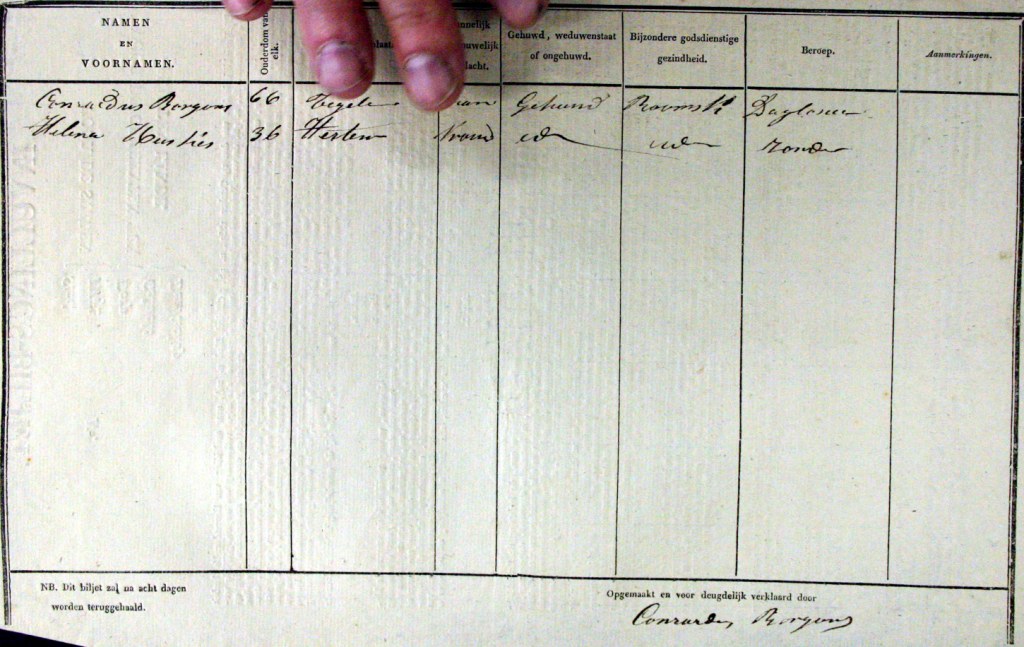 NAMEN
EN
VOORNAMEN.
Ouderdom van elk.
Gehuwd, weduwenstaat
of ongehuwd.
Bijzondere godsdienstige
gezindheid.
Beroep.
Aanmerkingen.
Conradus Borgons 66 Gehuwd Roomsk
Helena 36 Herten Vrouw id id zonder
NB. Dit biljet zal na acht dagen
worden teruggehaald.
Opgemaakt en voor deugdelijk verklaard door
Conradus Borgons